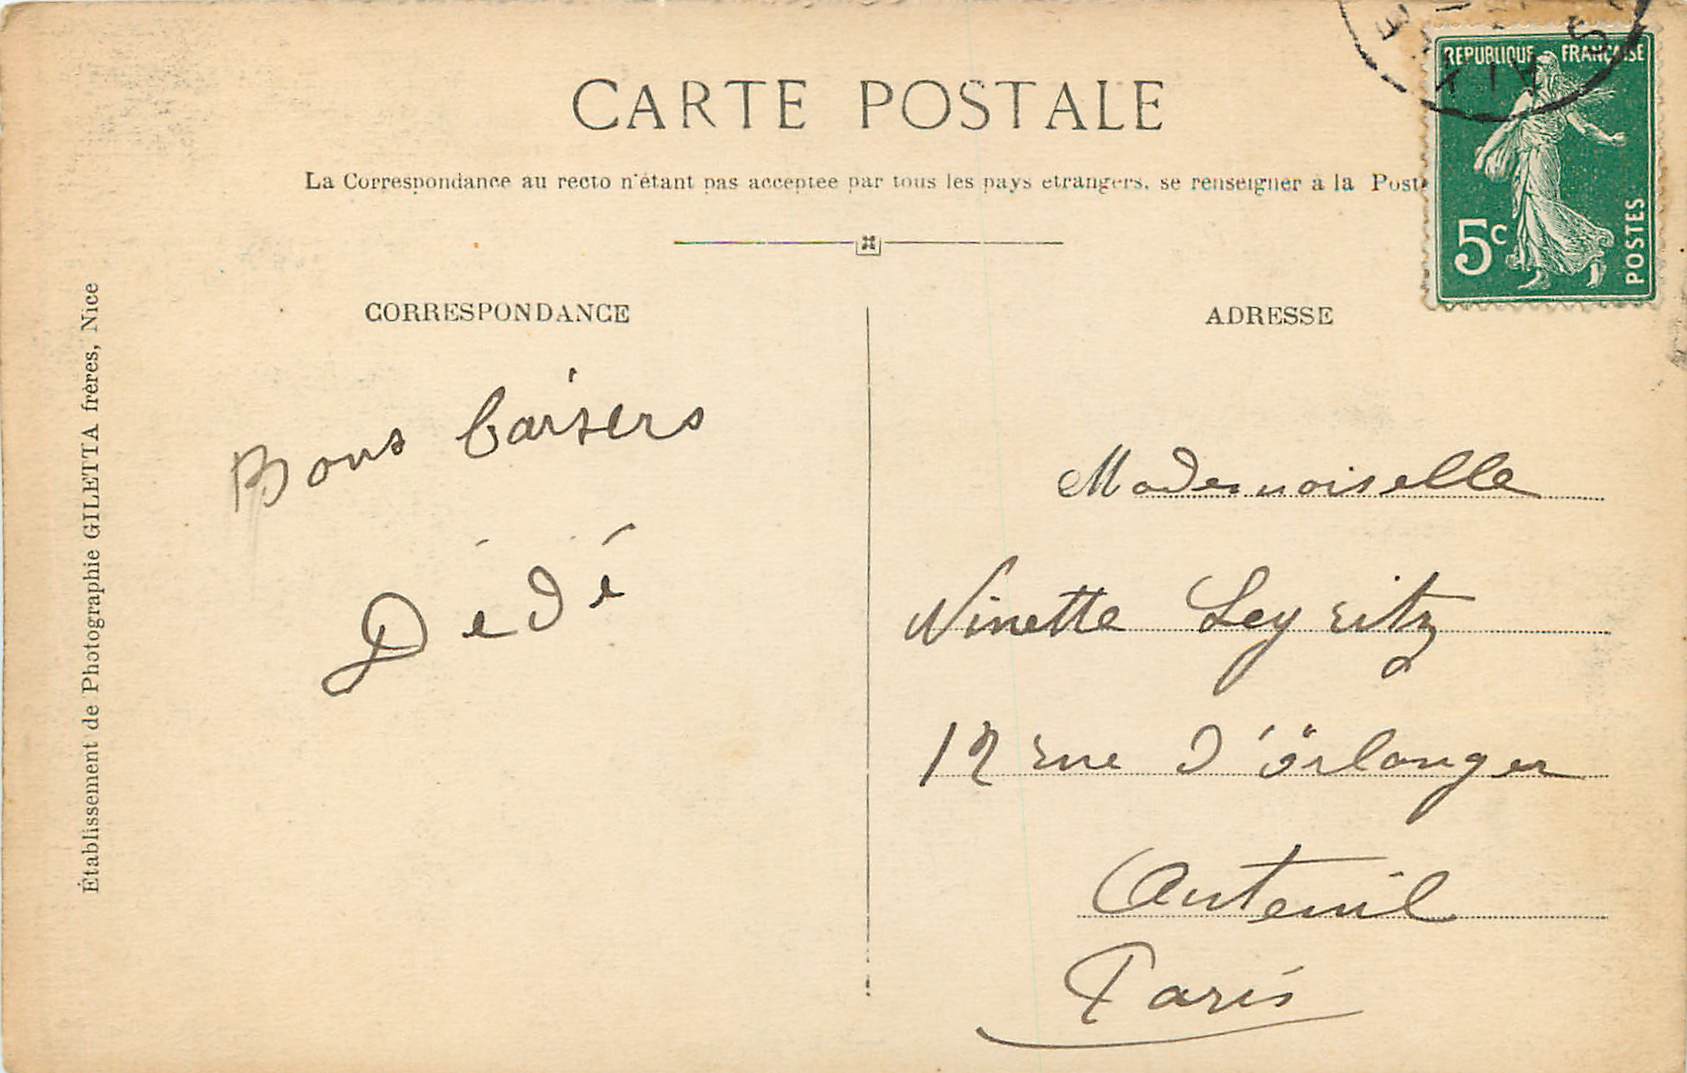 CARTE POSTALE
La Correspondance au recto n'étant pas acceptée par tous les pays étrangers, se renseigner à la Poste
REPUBLIQUE FRANÇAISE
5c
POSTES
CORRESPONDANCE
Bons baisers
Dédé
ADRESSE
Mademoiselle
Ninette Leyritz
12 rue d'Erlanger
Auteuil
Paris
Établissement de Photographie GILETTA frères, Nice